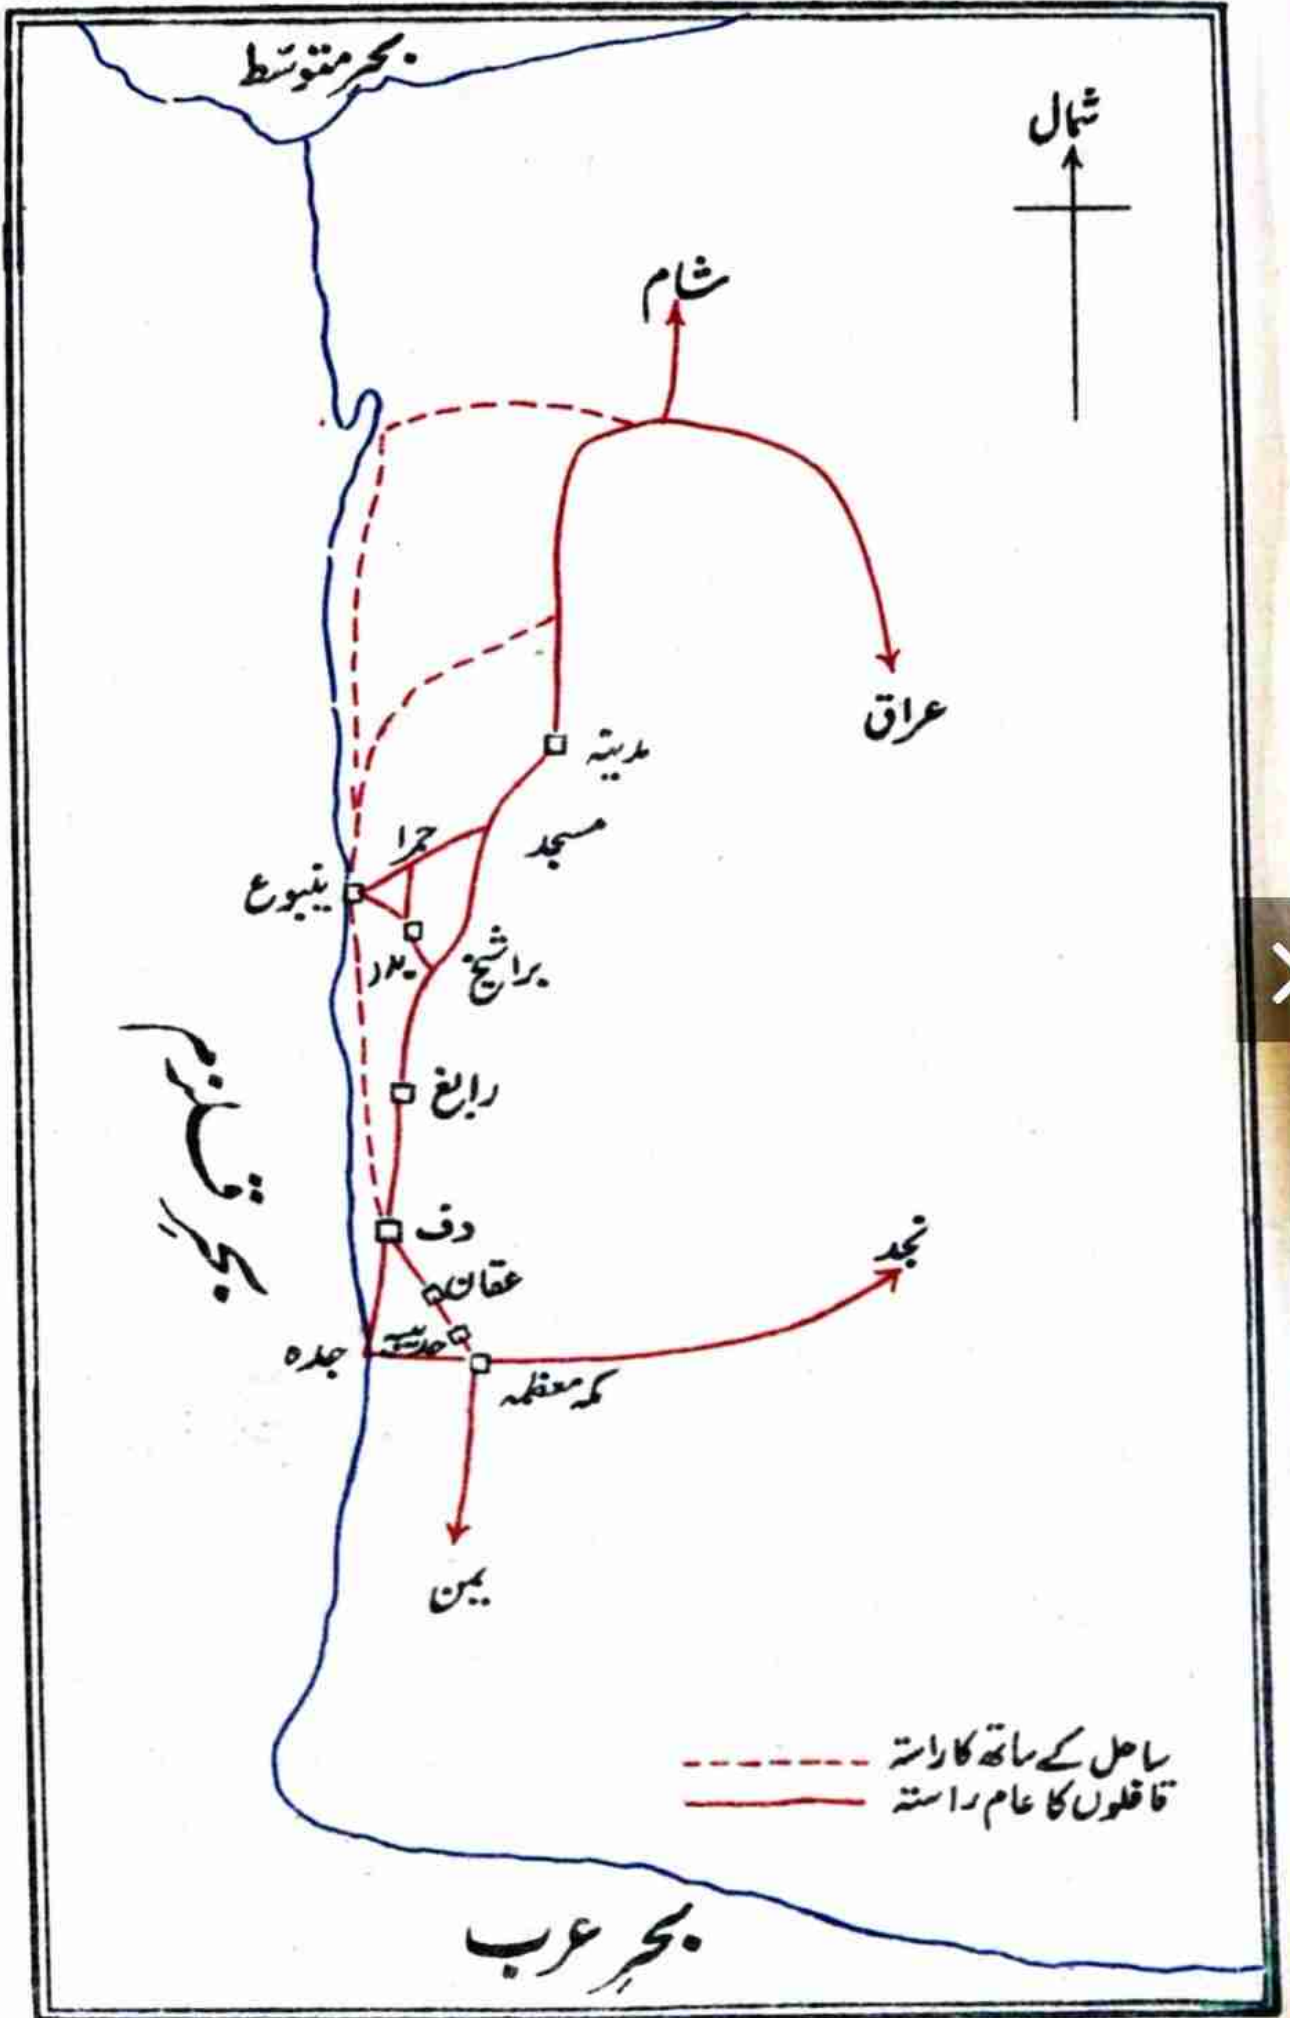 بحرِ متوسّط
شمال
شام
عراق
مدینہ
مسجد
حمرا
ینبوع
بدر
براشیخ
رابغ
بحرِ قلزم
دف
عقان
نجد
حدیبیہ
جدہ
مکہ معظمہ
یمن
ساحل کے ساتھ کا راستہ
قافلوں کا عام راستہ
بحرِ عرب